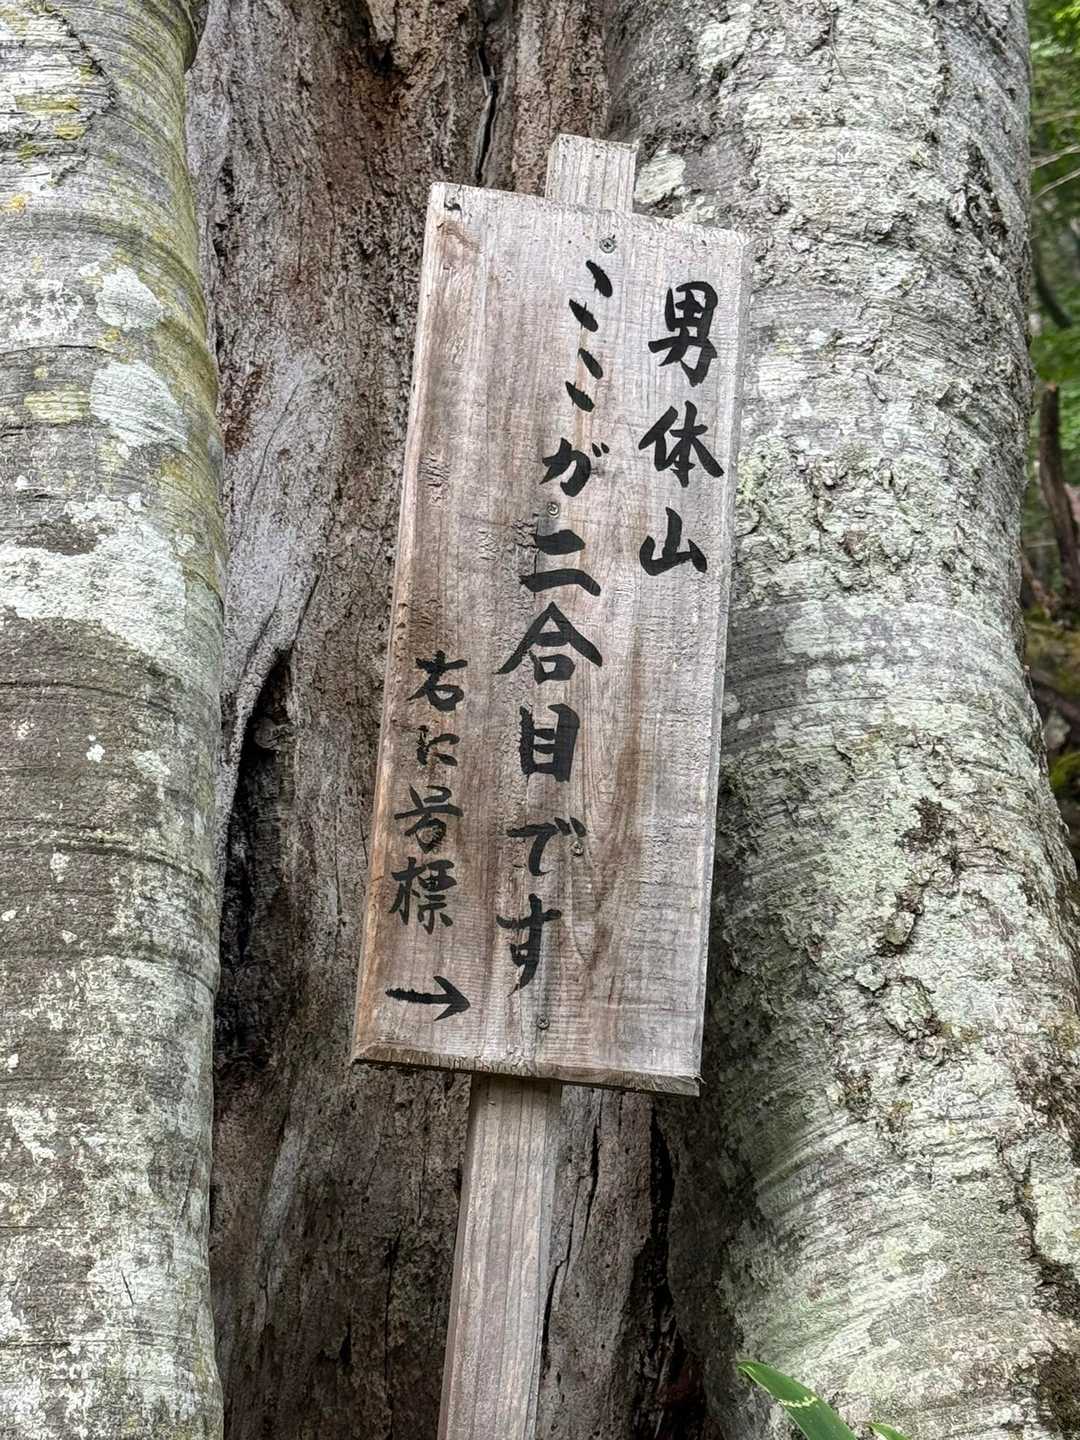 男体山
ここが二合目です
右に号標
→